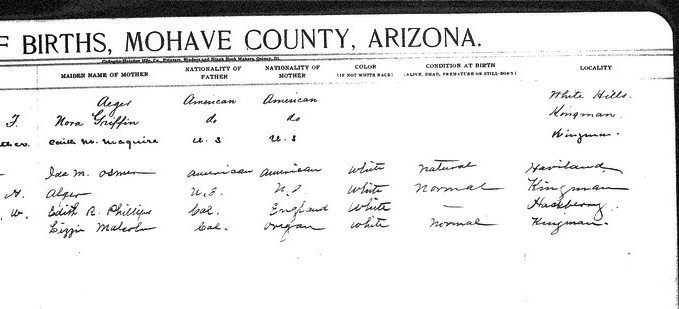 F BIRTHS, MOHAVE COUNTY, ARIZONA.
MAIDEN NAME OF MOTHER NATIONALITY OF FATHER NATIONALITY OF MOTHER COLOR (IF NOT WHITE RACE) CONDITION AT BIRTH (ALIVE, DEAD, PREMATURE OR STILL-BORN) LOCALITY
Aeges American American White Hills.
F. Nora Griffin do do Kingman.
Edith M. McGuire U.S U.S Kingman.
Ida M. Osmer American American White natural Haviland
H. Alger U.S. U.S. White Normal Kingman
W. Edith R. Phillips Cal. England White — Hackberry.
Lizzie Malcolm Cal. Origan White normal Kingman.